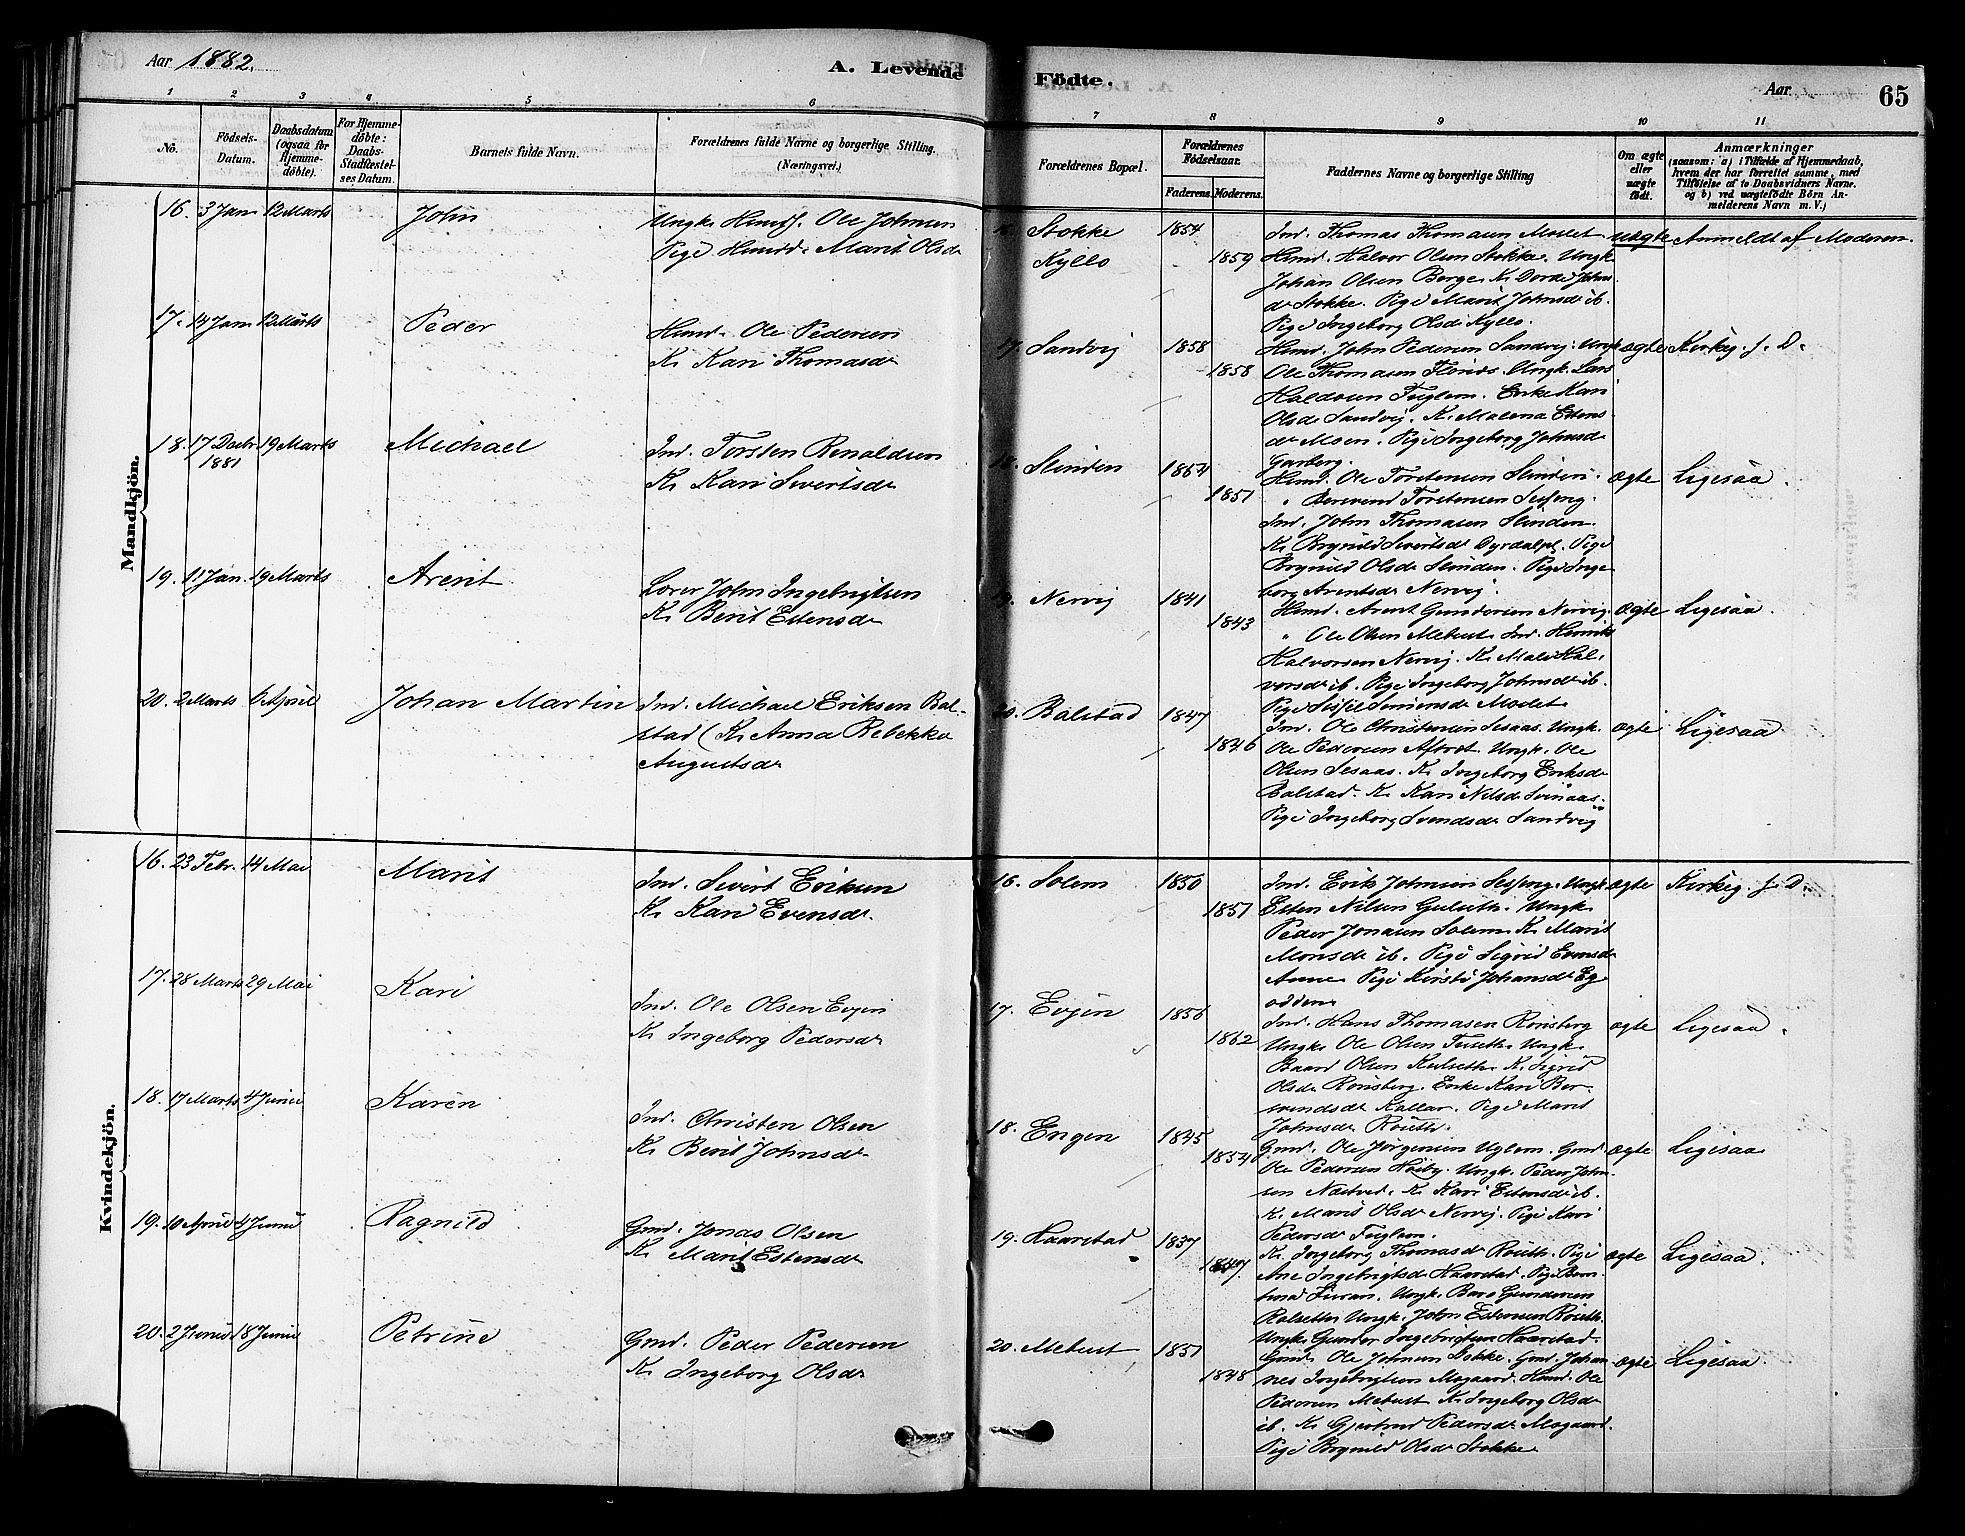 Aar 1882.
A. Levende Födte.
Aar
65
1 2 3 4 5 6 7 8 9 10 11
No.
Födsels-Datum.
Daabsdatum (ogsaa for Hjemmedöbte).
For Hjemmedöbte: Daabs-Stadfæstelses Datum.
Barnets fulde Navn.
Forældrenes fulde Navne og borgerlige Stilling. (Næringsvei.)
Forældrenes Bopæl.
Forældrenes Födselsaar.
Faderens. Moderens.
Faddernes Navne og borgerlige Stilling
Om ægte eller uægte födt.
Anmærkninger
(saasom: a) i Tilfælde af Hjemmedaab, hvem der har forrettet samme, med Tilföielse af to Daabsvidners Navne. og b) ved uægtefödte Börn Anmelderens Navn m. V.)
Mandkjön.
16. 3 Jan 12 Marts John
Ungk. Huusf. Ole Johnsen
Pige Marit Olsd
16. Stokke 1854
Kyllo 1859
Ind. Thomas Thomasen Moslet
Huusm. Halvor Olsen Stokke. Ungk.
Johan Olsen Berge. K. Dorde Johns
d Stokke. Pige Marit Johnsd ib.
Pige Ingeborg Olsd Kyllo.
uægte Anmeldt af Moderen.
17. 14 Jan 12 Marts Peder
Huusm. Ole Pedersen
K. Kari Thomasd
17. Sandvig 1858
1858
Huusm. John Pedersen Sandvig. Ungk
Ole Thomasen Flönes. Ungk. Lars
Haldorsen Fuglem. Enke Kari
Olsd Sandvig. K. Malena Estens
d Moen. Pige Ingeborg Johnsd
Garberg.
ægte Kirkeg. f. D.
18. 17 Decbr 1881 19 Marts Michael
Ind. Torsten Renaldsen
K. Kari Sivertsd
18. Slinden 1854
1851
Huusm. Ole Torstensen Slinden.
" Berevend Torstensen
Ind. John Thomasen Slinden
K. Brynild Sivertsd Dyrdalpl. Pige
Brynild Olsd Slinden. Pige Inge
borg Arentsd Nervig.
ægte Ligesaa.
19. 11 Jan. 19 Marts Arent
Lærer John Ingebrigtsen
K. Berit Estensd
19. Nervig 1841
1843
Huusm. Arent Gundersen Nervig
" Ole Olsen Mebust. Ind. Henrik
Halvorsen Nervig. K. Mali Hal
vorsd ib. Pige Ingeborg Johnsd ib.
Pige Moslet
ægte Ligesaa.
20. 2 Marts 6 April Johan Martin
Ind. Michael Eriksen Bal-
stad (K. Anna Rebekka
Augustsd
20. Balstad 1847
1846
Ind. Ole Christensen Sesaas. Ungk.
Ole Pedersen Aftret. Ungk. Ole
Olsen Sesaas. K. Ingeborg Eriksd
Balstad. K. Kari Nilsd Svinaas.
Pige Ingeborg Svendsd Sandvig
ægte Ligesaa
Kvindekjön.
16. 23 Febr. 14 Mai Marit
Ind. Sivert Eriksen
K. Kari Evensd.
16. Solem 1850
1851
Ind. Erik Johnsen Ungk.
Esten Nilsen Gulseth. Ungk.
Peder Jonasen Solem. K. Marit
Monsd ib. Pige Sigrid Evensd
Aune Pige Kirsti Johansd Eg
odden.
ægte Kirkeg. f. D.
17. 28 Marts 29 Mai Kari
Ind. Ole Olsen Evjen
K. Ingeborg Pedersd
17. Evjen 1856
1862
Ind. Hans Thomasen Rönsberg
Ungk. Ole Olsen Ungk.
Baard Olsen Kulseth. K. Sigrid
Olsd Rönsberg. Enke Kari Ber
svendsd Kallar. Pige Marit
Johnsd Röseth.
ægte Ligesaa.
18. 17 Marts 4 Juni Karen
Ind. Christen Olsen
K. Berit Johnsd
18. Engen 1845
1854
Gmd. Ole Jörgensen Uglem. Gmd.
Ole Pedersen Næsby. Ungk. Peder John
sen Næstved. K. Kari Estensd ib.
K. Marit Olsd Nervig. Pige Kari
Pedersd Fuglem.
ægte Ligesaa
19. 10 April 4 Juni Ragnild
Gmd. Jonas Olsen
K. Marit Estensd
19. Haarstad 1837
1847.
K. Ingeborg Thomasd Röseth. Pige
Ane Ingebrigtsd Haarstad. Pige
Furan. Ungk. Gundersen
Rolseth. Ungk. John Estensen Röseth.
Ungk. Gunder Ingebrigtsen Haarstad.
ægte Ligesaa.
20. 2 Juni 18 Juni Petrine
Gmd. Peder Pedersen
K. Ingeborg Olsd
20. Mebust 1851
1848
Gmd. Ole Johnsen Stokke. Gmd. Johan
nes Ingebrigtsen Mogaard. Huusm. Ole
Pedersen Mebust. K. Ingeborg Olsd
ib. K. Gjertrud Pedersd Mogaard.
Pige Brynild Olsd Stokke.
ægte Ligesaa.